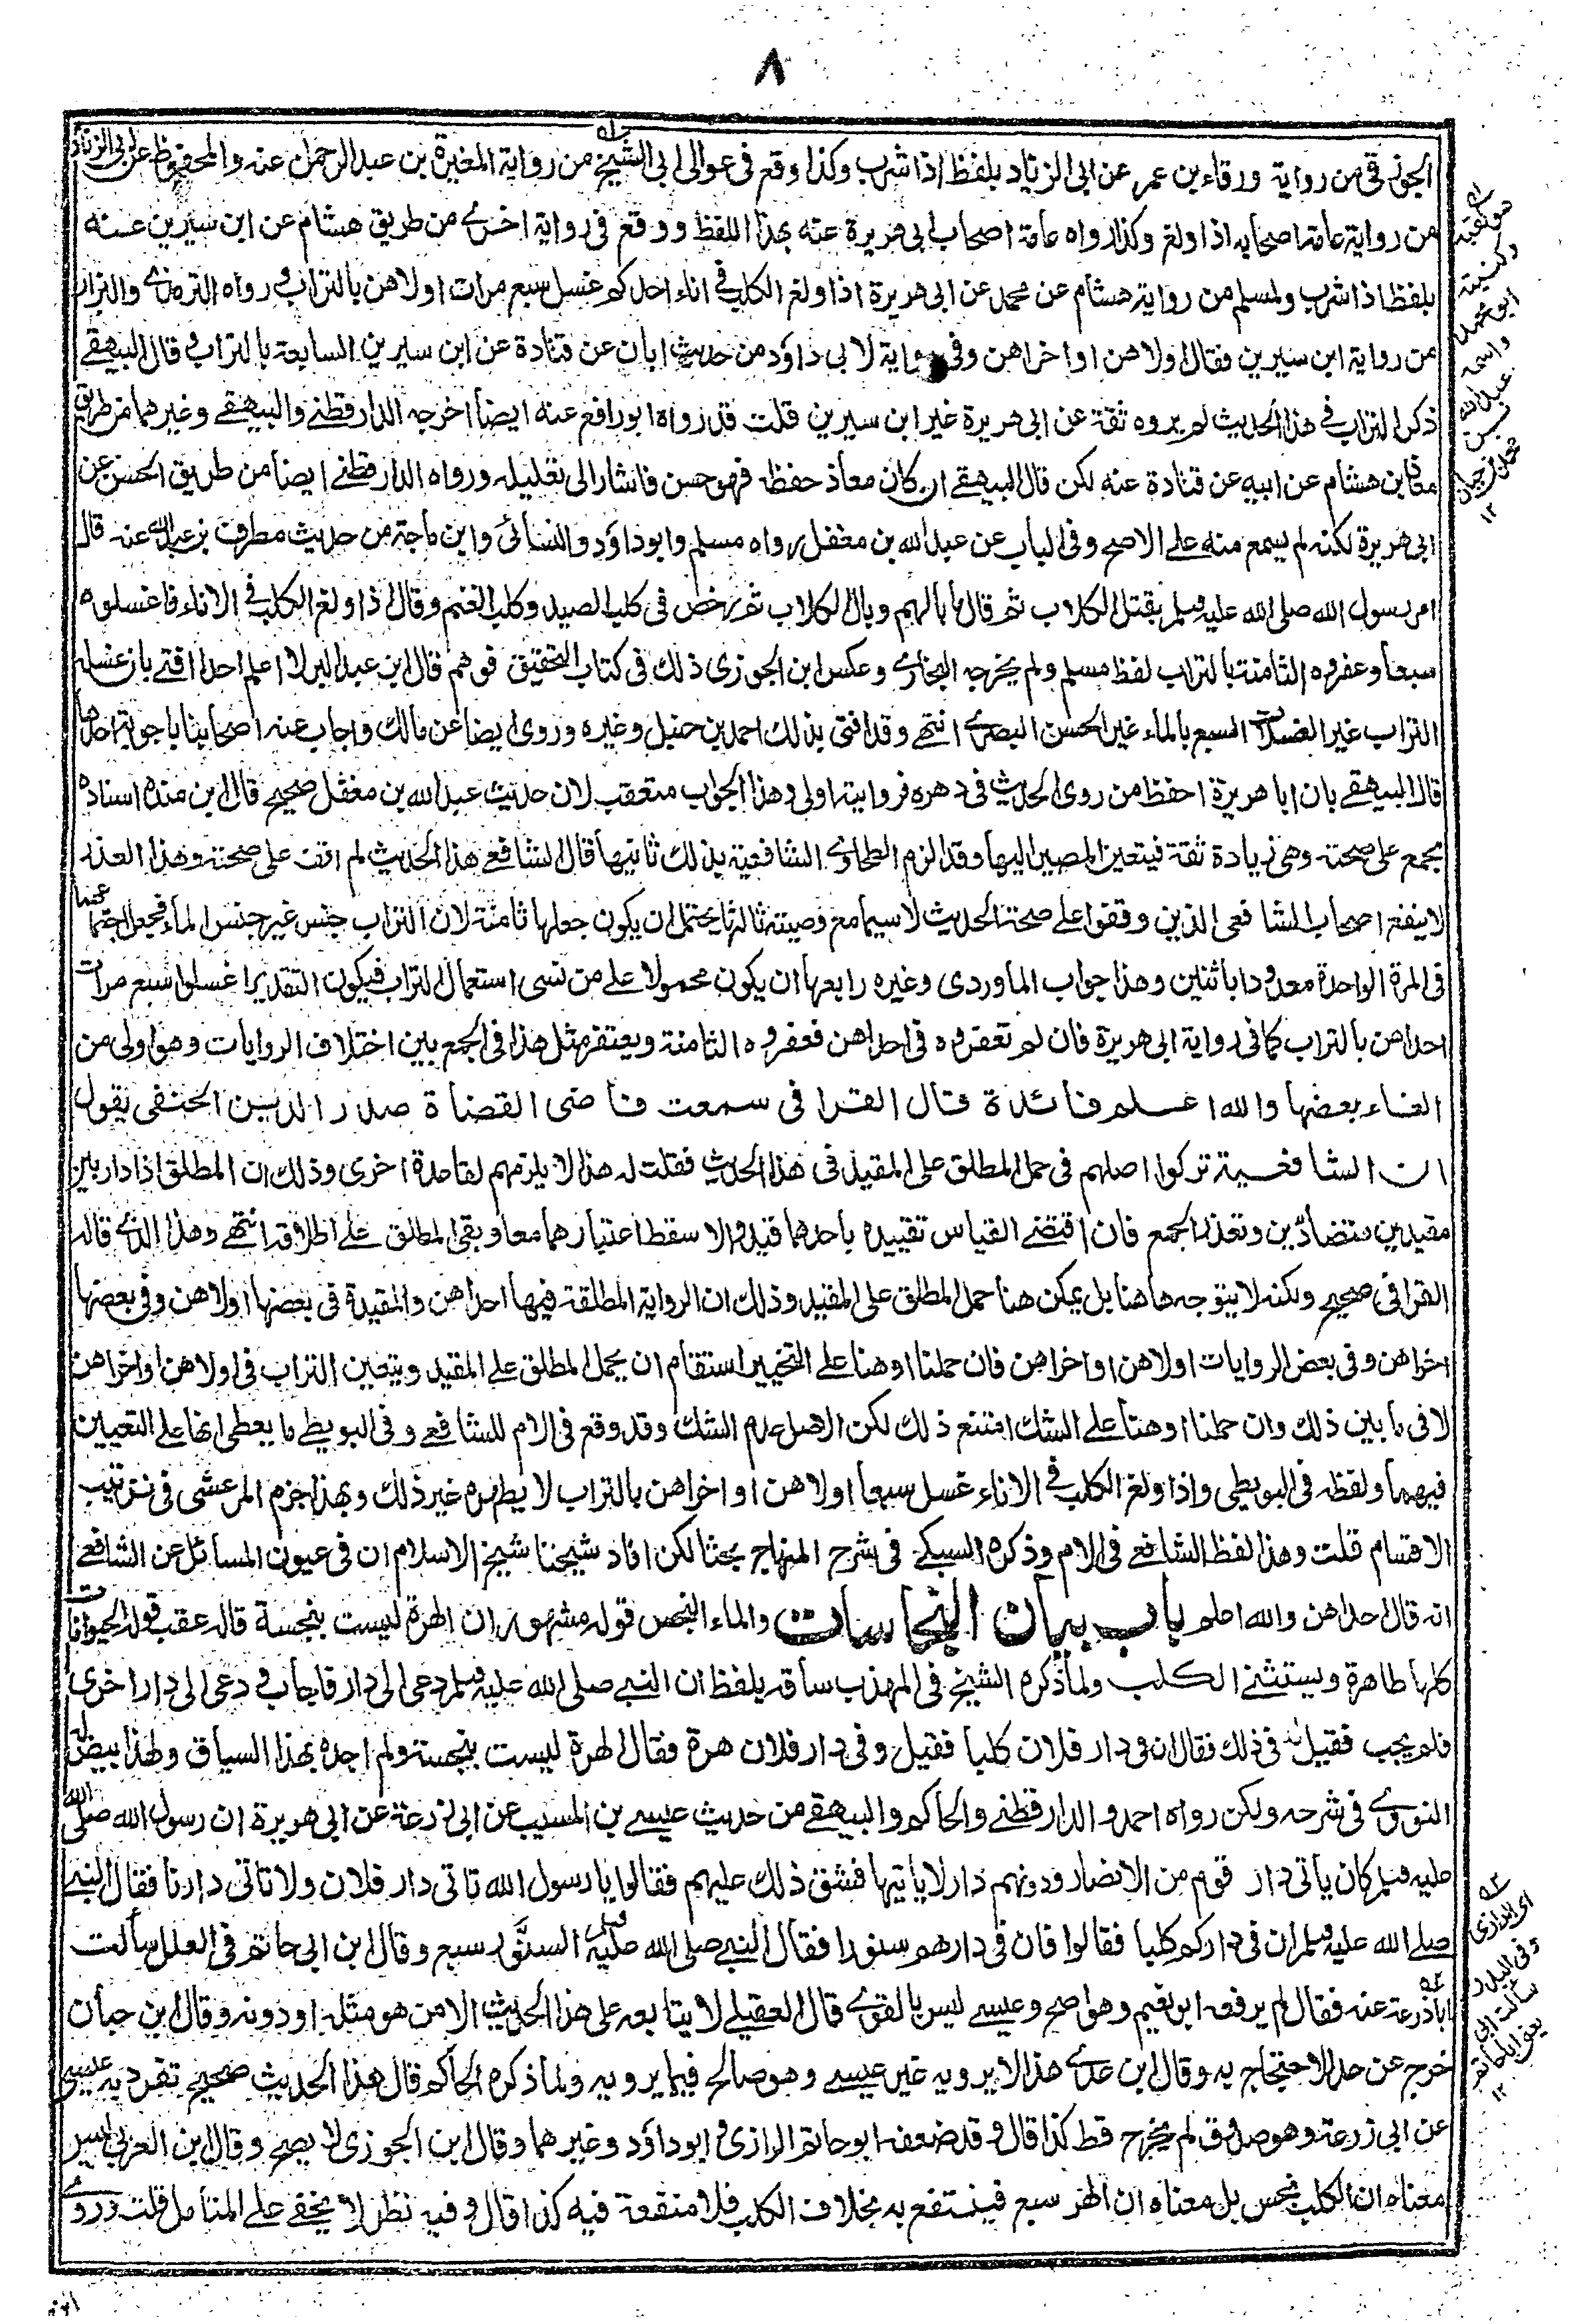 ٨
الجوزقى من رواية ورقاء بن عمر عن ابى الزناد بلفظ اذا شرب وكذا وقع فى عوالى ابى الشيخ من رواية المغيرة بن عبد الرحمن عنه والمحفوظ عن ابى الزناد
من رواية عامة اصحابه اذا ولغ وكذا رواه عامة اصحاب ابى هريرة عنه بهذا اللفظ ووقع فى رواية اخرے من طريق هشام عن ابن سيرين عنه
بلفظ اذا شرب ولمسلم من رواية هشام عن محمد عن ابى هريرة اذا ولغ الكلب فى اناء احدكم غسل سبع مرات اولاهن بالتراب و رواه الترمذے والبزار
من رواية ابن سيرين فقال اولاهن او اخراهن وفى رواية لابى داؤد من حديث ابان عن قتادة عن ابن سيرين السابعة بالتراب و قال البيهقے
ذكر التراب فى هذا الحديث لم يروه ثقة عن ابى هريرة غير ابن سيرين قلت قد رواه ابو رافع عنه ايضا اخرجه الدارقطنے والبيهقے وغيرهما من طريق
معاذ بن هشام عن ابيه عن قتادة عنه لكن قال البيهقے ان كان معاذ حفظه فهو حسن فاشار الى تعليله ورواه الدارقطنے ايضا من طريق الحسن عن
ابى هريرة لكنه لم يسمع منه علے الاصح وفى الباب عن عبد الله بن مغفل رواه مسلم وابو داؤد والنسائى وابن ماجة من حديث مطرف بن عبد الله عنه قال
امر رسول الله صلى الله عليه وسلم بقتل الكلاب ثم قال ما بالهم وبال الكلاب ثم رخص فى كلب الصيد وكلب الغنم وقال اذا ولغ الكلب فى الاناء فاغسلوه
سبعا وعفروه الثامنة بالتراب لفظ مسلم ولم يخرجه البخارے وعكس ابن الجوزى ذلك فى كتاب التحقيق فوهم قال ابن عبد البر لا اعلم احدا افتے بان غسلة
التراب غير الغسلات السبع بالماء غير الحسن البصرے انتهے وقد افتى بذلك احمد بن حنبل وغيره وروى ايضا عن مالك واجاب عنه اصحابنا باجوبة احدها
قال البيهقے بان ابا هريرة احفظ من روى الحديث فى دهره فروايته اولى وهذا الجواب متعقب لان حديث عبد الله بن مغفل صحيح قال ابن منده اسناده
مجمع على صحته وهى زيادة ثقة فيتعين المصير اليها وقد الزم الطحاوے الشافعية بذلك ثانيها قال الشافعے هذا الحديث لم اقف على صحته وهذا العذر
لا ينفع اصحاب الشافعى الذين وقفوا على صحة الحديث لا سيما مع وصيته ثالثها يحتمل ان يكون جعلها ثامنة لان التراب جنس غير جنس الماء فجعل اجتماعهما
فى المرة الواحدة معدودا باثنين وهذا جواب الماوردى وغيره رابعها ان يكون محمولا على من نسى استعمال التراب فيكون التقدير اغسلوا سبع مرات
احداهن بالتراب كما فى رواية ابى هريرة فان لم تعفروه فى احداهن فعفروه الثامنة ويغتفر مثل هذا فى الجمع بين اختلاف الروايات وهو اولى من
الغاء بعضها والله اعلم فائدة قال القرافى سمعت قاضى القضاة صدر الدين الحنفى يقول
ان الشافعية تركوا اصلهم فى حمل المطلق على المقيد فى هذا الحديث فقلت له هذا لا يلزمهم لقاعدة اخرى وذلك ان المطلق اذا دار بين
مقيدين متضادّين وتعذر الجمع فان اقتضے القياس تقييده باحدهما قيد والا سقط اعتبارهما معا وبقى المطلق علے اطلاقه انتهے وهذا الذے قاله
القرافى صحيح ولكنه لا يتوجه ها هنا بل يمكن هنا حمل المطلق على المقيد وذلك ان الرواية المطلقة فيها احداهن والمقيدة فى بعضها اولاهن وفى بعضها
اخراهن وفى بعض الروايات اولاهن او اخراهن فان حملنا او هنا علے التخيير استقام ان يحمل المطلق على المقيد ويتعين التراب فى اولاهن او اخراهن
لا فى ما بين ذلك وان حملنا او هنا علے الشك امتنع ذلك لكن الاصل عدم الشك وقد وقع فى الام للشافعے وفى البويطے ما يعطى انها على التعيين
فيهما ولفظه فى البويطى واذا ولغ الكلب فى الاناء غسل سبعا اولاهن او اخراهن بالتراب لا يطهره غير ذلك وبهذا جزم المرعشى فى ترتيب
الاقسام قلت وهذا لفظ الشافعے فى الام وذكره السبكے فى شرح المنهاج بحثا لكن افاد شيخنا شيخ الاسلام ان فى عيون المسائل عن الشافعے
انه قال احداهن والله اعلم باب بيان النجاسات والماء النجس قوله مشهور ان الهرة ليست بنجسة قاله عقب قوله الحيوانات
كلها طاهرة ويستثنے الكلب ولما ذكره الشيخ فى المهذب ساقه بلفظ ان النبے صلى الله عليه وسلم دعى الى دار فاجاب ودعى الى دار اخرى
فلم يجب فقيل له فى ذلك فقال ان فى دار فلان كلبا فقيل وفى دار فلان هرة فقال الهرة ليست بنجسة ولم اجده بهذا السياق ولهذا بيض له
النووے فى شرحه ولكن رواه احمد والدارقطنے والحاكم والبيهقے من حديث عيسے بن المسيب عن ابى زرعة عن ابى هريرة ان رسول الله صلى الله
عليه وسلم كان يأتى دار قوم من الانصار ودونهم دار لا يأتيها فشق ذلك عليهم فقالوا يا رسول الله تاتى دار فلان ولا تاتى دارنا فقال النبے
صلے الله عليه وسلم ان فى داركم كلبا فقالوا فان فى دارهم سنورا فقال النبے صلى الله عليه وسلم السنّور سبع وقال ابن ابى حاتم فى العلل سألت
ابا زرعة عنه فقال لم يرفعه ابو نعيم وهو اصح وعيسے ليس بالقوے قال العقيلے لا يتابعه على هذا الحديث الا من هو مثله او دونه وقال ابن حبان
خرج عن حد الاحتجاج به وقال ابن عدے هذا لا يرويه غير عيسے وهو صالح فيما يرويه ولما ذكره الحاكم قال هذا الحديث صحيح تفرد به عيسى
عن ابى زرعة وهو صدوق لم يجرح قط كذا قال و قد ضعفه ابو حاتم الرازى و ابو داؤد وغيرهما وقال ابن الجوزى لا يصح وقال ابن العربى ليس
معناه ان الكلب نجس بل معناه ان الهر سبع فينتفع به بخلاف الكلب فلا منفعة فيه كذا قال و فيه نظر لا يخفے علے المتأمل قلت وروے
لـه
هو لقبه
وكنيته
ابو محمد
واسمه
عبد الله
بن
محمد بن حيان
١٢
اى الرازى
وفى البدر
سألت ابى